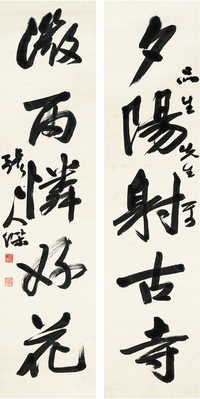 夕陽射古寺
品生先生方
微雨憐好花
張人傑